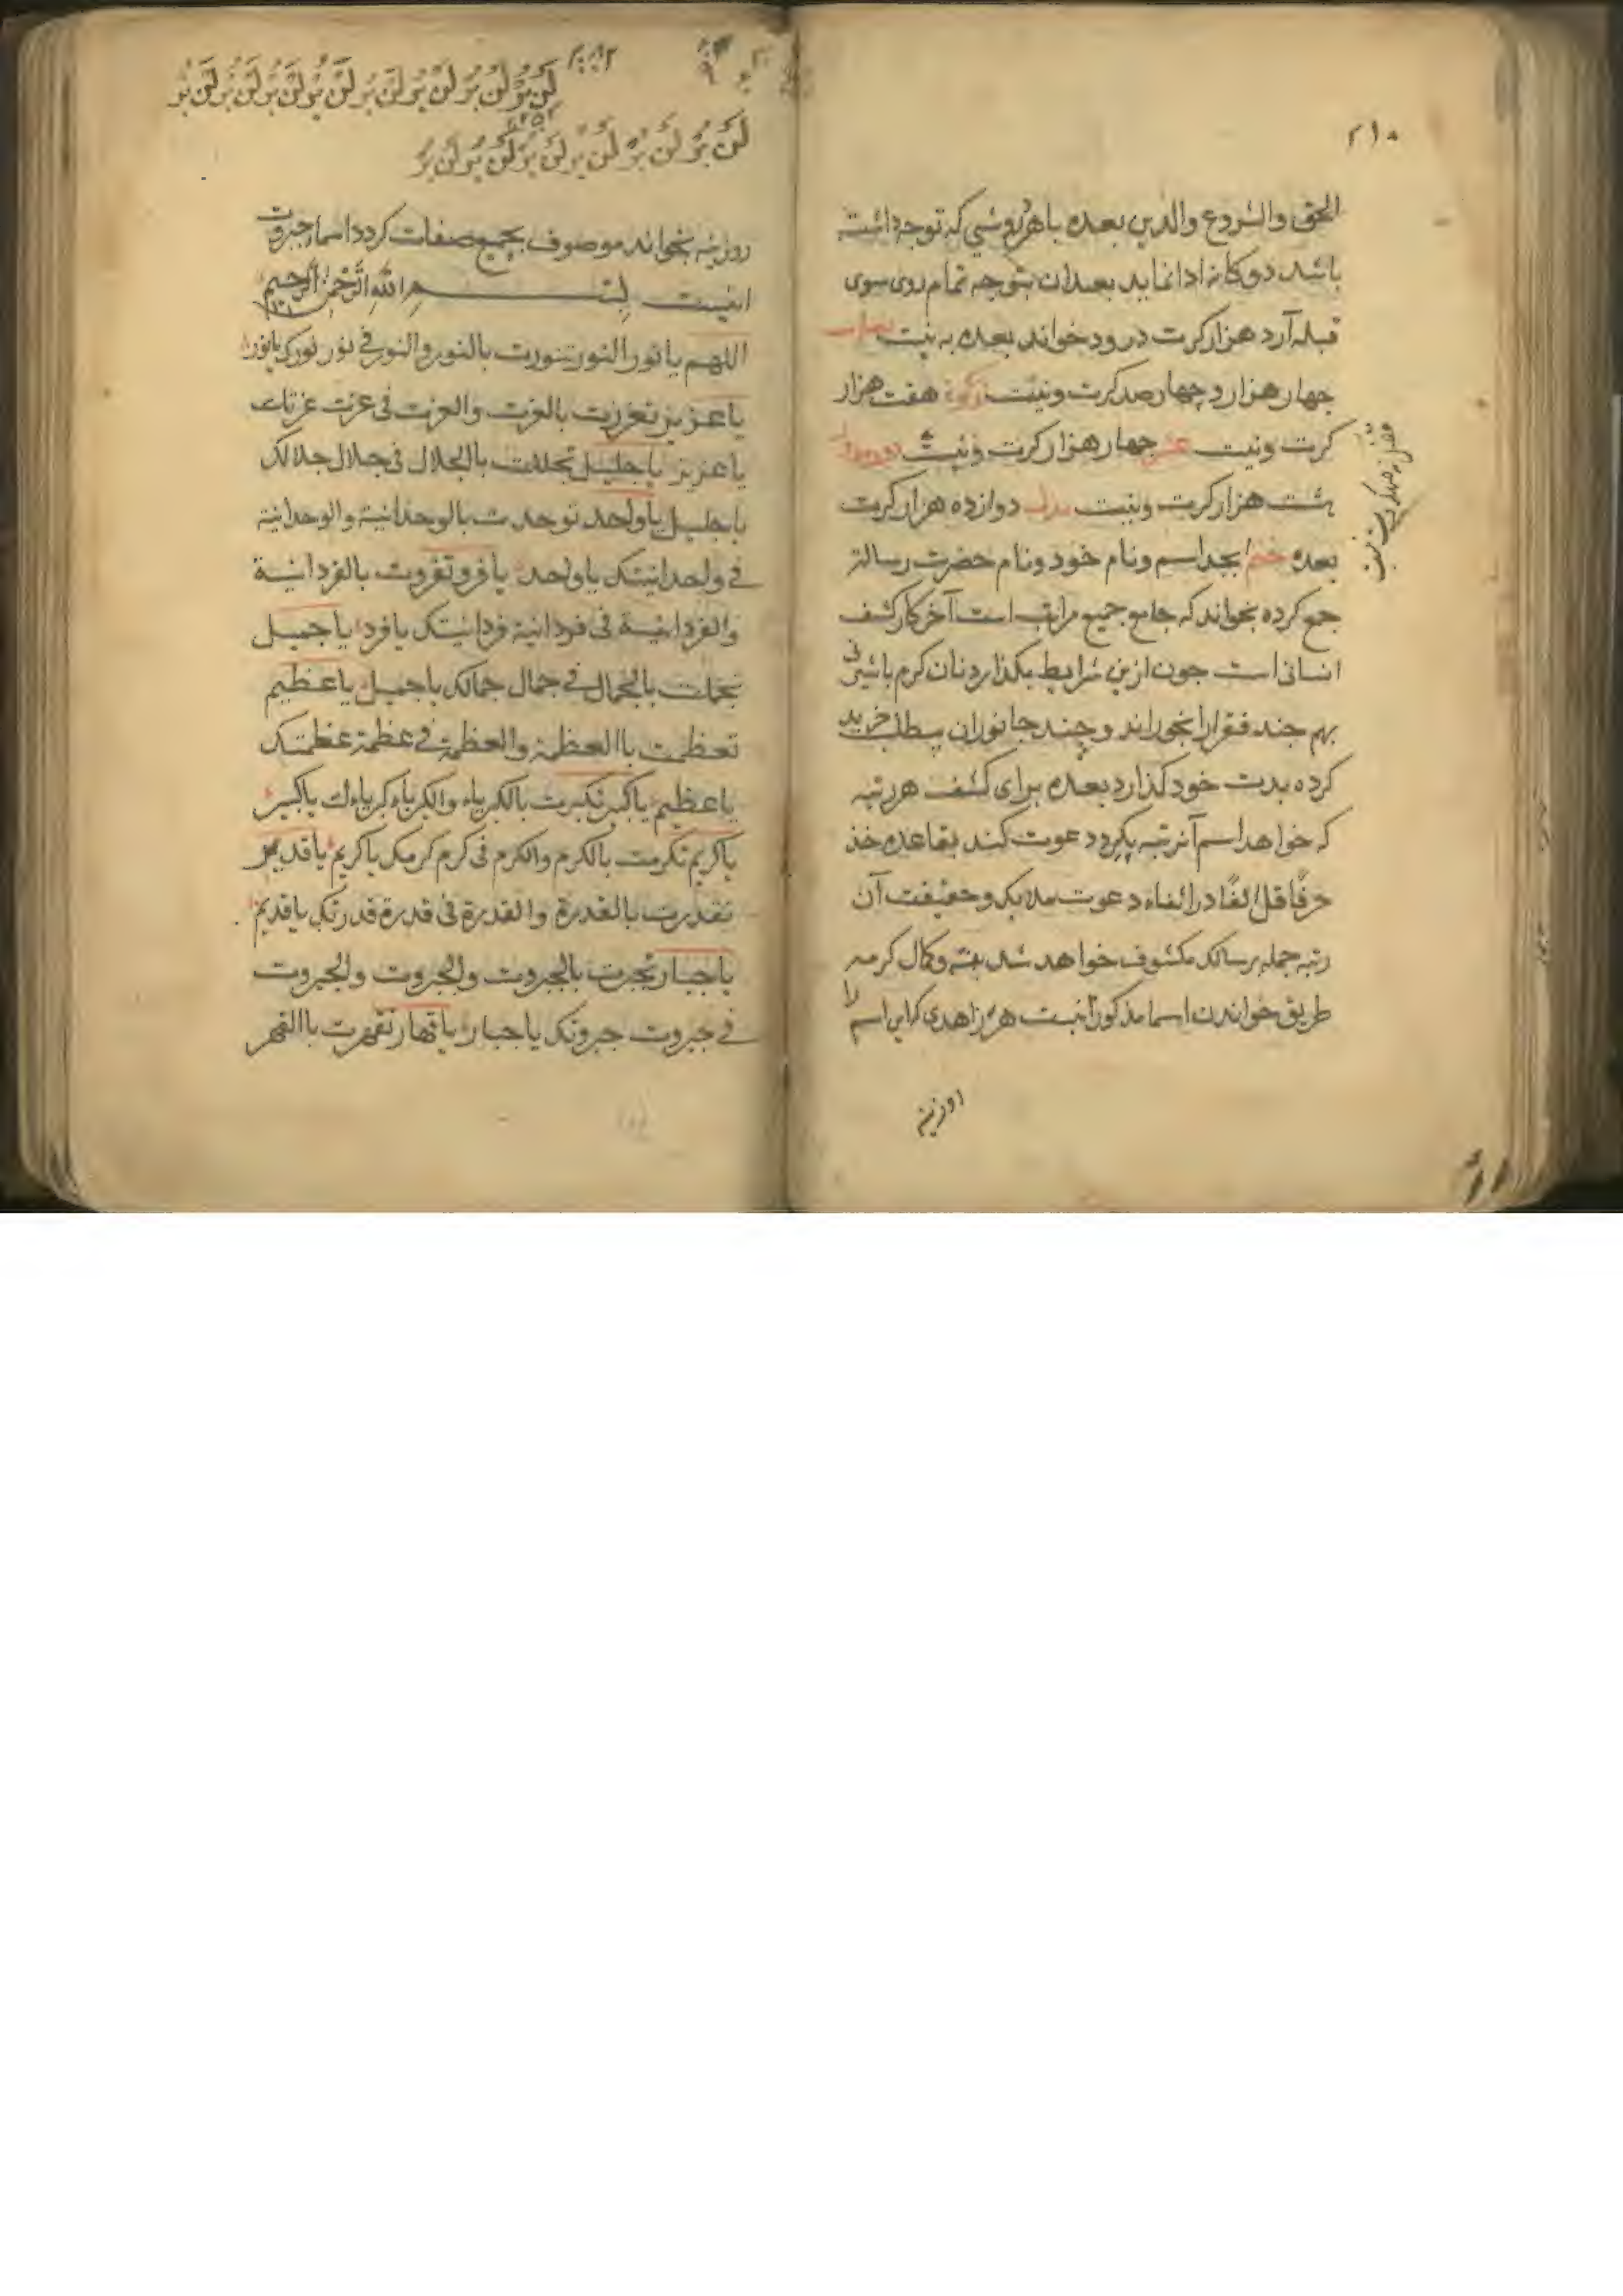 ۲۱۰
الحق والشروع والدین بعده باهر روشی که توجه داشته
باشد دوکانه ادا نماید بعد ان بتوجه تمام روی سوی
قبله آرد هزار کرت درود خواند بعده به نیت نصاب
چهار هزار و چهار صد کرت و نیت زکوة هفت هزار
کرت و نیت عشر چهار هزار کرت و نیت دور مدور
هشت هزار کرت و نیت بذل دوازده هزار کرت
بعده ختم بعد اسم و نام خود و نام حضرت رسالة
جمع کرده بخواند که جامع جمیع مراتب است آخر کار کشف
انسانی است جون ازین شرایط بکذارد نان کرم باشیرنی
بهم جند فقرا را بخوراند و چند جانوران بسطلب خرید
کرده بدست خود کذارد بعده برای کشف هر رتبه
که خواهد اسم آنرتبه بکیرد دعوت کند بقاعده خذ
حرفًا قل الفًا در اثناء دعوت ملایک و حقیقت آن
رتبه جمله برسالک مکشوف خواهد شد بمنه وکمال کرمه
طریق خواندن اسما مذکور آنیست هر زاهدی که این اسم را
روزینه
لَن بُر لَن بُر لَن بُر لَن بُر لَن بُر لَن بُر لَن بُر لَن بُر
لَن بُر لَن بُر لَن بُر لَن بُر لَن بُر لَن بُر
روزینه بخواند موصوف بجمیع صفات کردد اسما جبروت
اینست بسم الله الرحمن الرحیم
اللهم یا نور النور تنورت بالنور والنور فی نور نورک یا نور
یا عزیز تعززت بالعزت والعزت فی عزت عزتک
یا عزیز یا جلیل تجللت بالجلال فی جلال جلالک
یا جلیل یا واحد توحدت بالوحدانیة والوحدانیة
فی واحدانیتک یا واحد یا فرد تفردت بالفردانیة
والفردانیة فی فردانیة فردانیتک یا فرد یا جمیل
تجملت بالجمال فی جمال جمالک یا جمیل یا عظیم
تعظمت باالعظمة والعظمة فی عظمة عظمتک
یا عظیم یا کبیر تکبرت بالکبریاء والکبریاء کبریاءک یا کبیر
یا کریم تکرمت بالکرم والکرم فی کرم کرمک یا کریم یا قدیر
تقدرت بالقدرة والقدرة فی قدرة قدرتک یا قدیر
یا جبار تجبرت بالجبروت والجبروت والجبروت
فی جبروت جبروتک یا جبار یا قهار تقهرت باالقهر